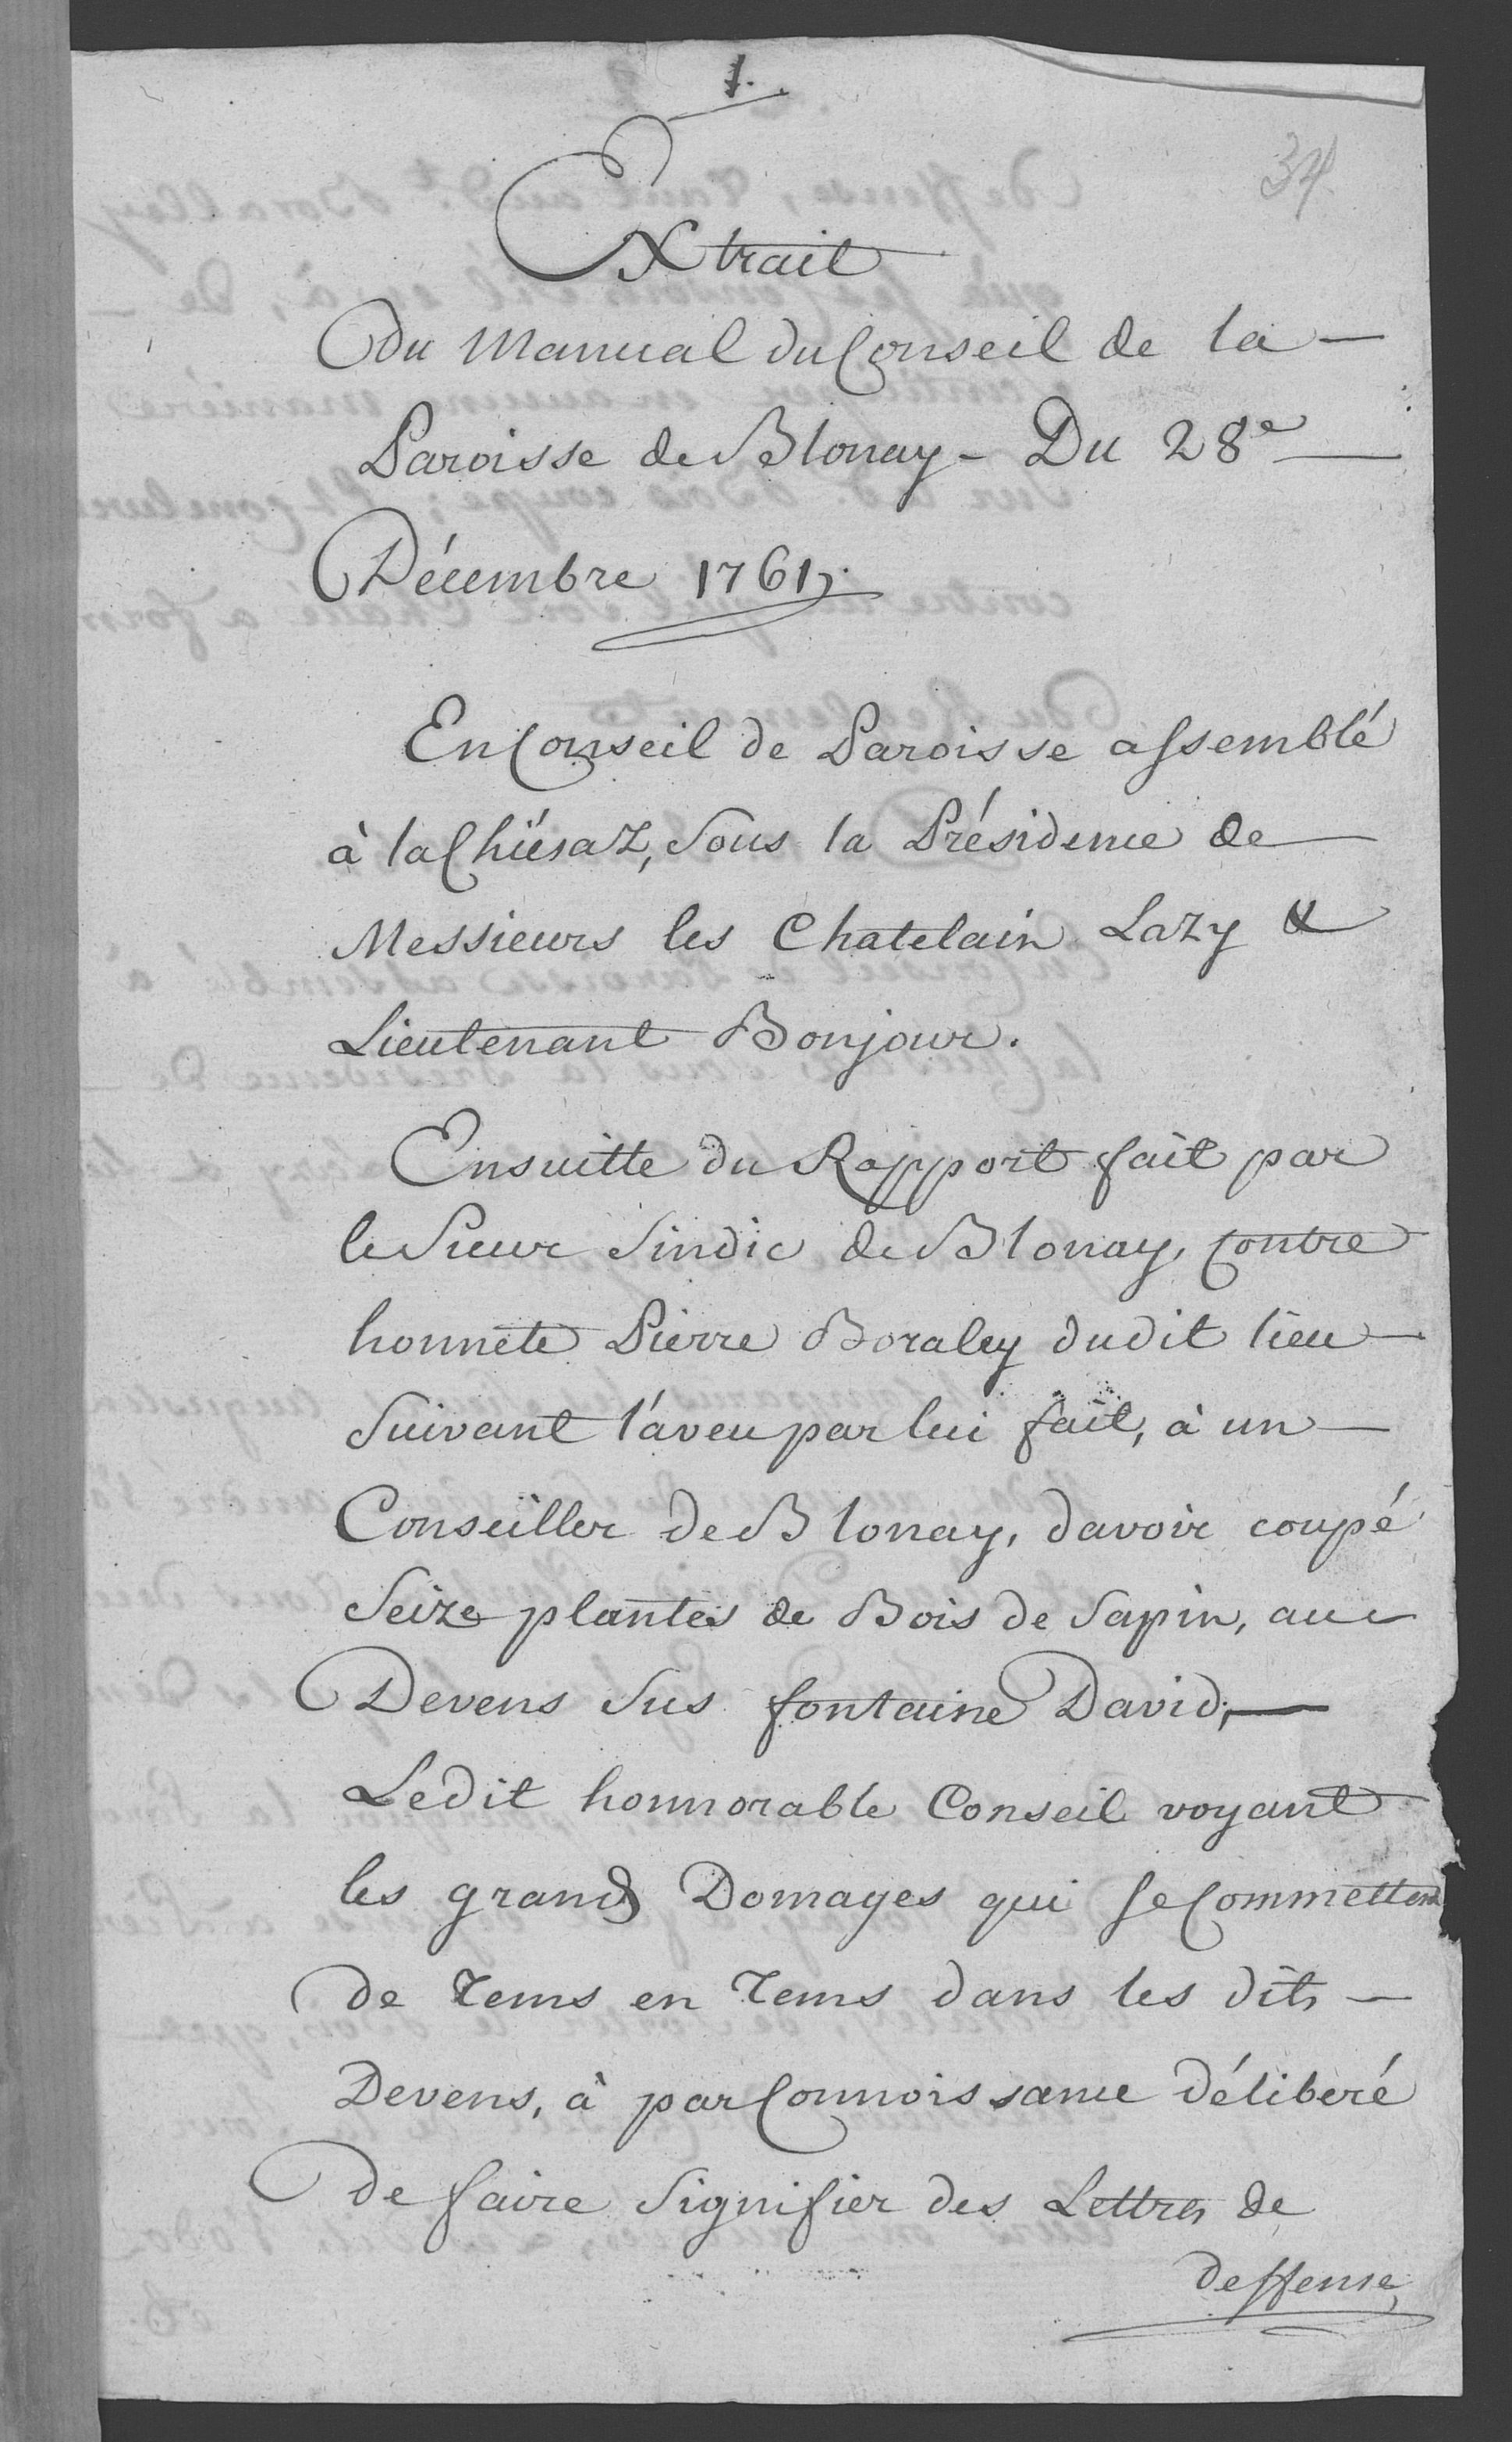 1.
34
Extrait
Du Manual du Conseil de la —
Paroisse de Blonay - Du 28e —
Décembre 1761.
En Conseil de Paroisse assemblé
à la Chiésaz, sous la Présidence de —
Messieurs les Chatelain Lazy &
Lieutenant Bonjour.
Ensuitte du Rapport fait par
le Sieur Sindic de Blonay, contre
honnete Pierre Boraley dudit lieu —
suivant l'aveu par lui fait, à un —
Conseiller de Blonay, davoir coupé
Seize plantes de Bois de Sapin, au
Devens sus fontaine David, —
Ledit honnorable Conseil voyant
les grands Domages qui se Commettent
de tems en tems dans les dits —
Devens, à par Connoissance délibéré
De faire signifier des Lettres de
deffense